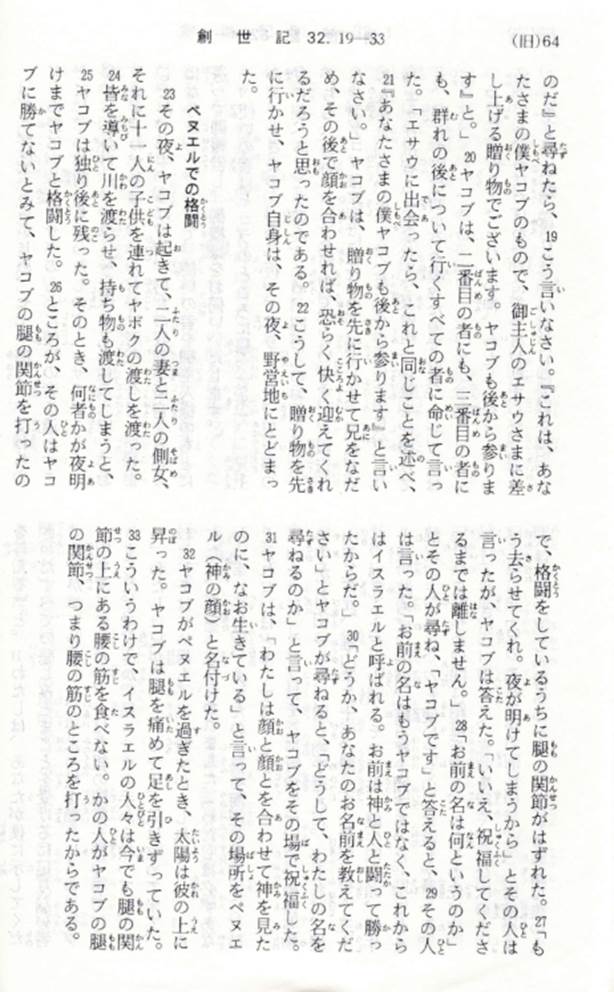 創世記 32. 19—33
(旧)64
のだ』と尋ねたら、19こう言いなさい。『これは、あな
たさまの僕ヤコブのもので、御主人のエサウさまに差
し上げる贈り物でございます。ヤコブも後から参りま
す』と。」20ヤコブは、二番目の者にも、三番目の者に
も、群れの後について行くすべての者に命じて言っ
た。「エサウに出会ったら、これと同じことを述べ、
21『あなたさまの僕ヤコブも後から参ります』と言い
なさい。」ヤコブは、贈り物を先に行かせて兄をなだ
め、その後で顔を合わせれば、恐らく快く迎えてくれ
るだろうと思ったのである。22こうして、贈り物を先
に行かせ、ヤコブ自身は、その夜、野営地にとどまっ
た。
ペヌエルでの格闘
23その夜、ヤコブは起きて、二人の妻と二人の側女、
それに十一人の子供を連れてヤボクの渡しを渡った。
24皆を導いて川を渡らせ、持ち物も渡してしまうと、
25ヤコブは独り後に残った。そのとき、何者かが夜明
けまでヤコブと格闘した。26ところが、その人はヤコ
ブに勝てないとみて、ヤコブの腿の関節を打ったの
で、格闘をしているうちに腿の関節がはずれた。27「も
う去らせてくれ。夜が明けてしまうから」とその人は
言ったが、ヤコブは答えた。「いいえ、祝福してくださ
るまでは離しません。」28「お前の名は何というのか」
とその人が尋ね、「ヤコブです」と答えると、29その人
は言った。「お前の名はもうヤコブではなく、これから
はイスラエルと呼ばれる。お前は神と人と闘って勝っ
たからだ。」30「どうか、あなたのお名前を教えてくだ
さい」とヤコブが尋ねると、「どうして、わたしの名を
尋ねるのか」と言って、ヤコブをその場で祝福した。
31ヤコブは、「わたしは顔と顔とを合わせて神を見た
のに、なお生きている」と言って、その場所をペヌエ
ル(神の顔)と名付けた。
32ヤコブがペヌエルを過ぎたとき、太陽は彼の上に
昇った。ヤコブは腿を痛めて足を引きずっていた。
33こういうわけで、イスラエルの人々は今でも腿の関
節の上にある腰の筋を食べない。かの人がヤコブの腿
の関節、つまり腰の筋のところを打ったからである。